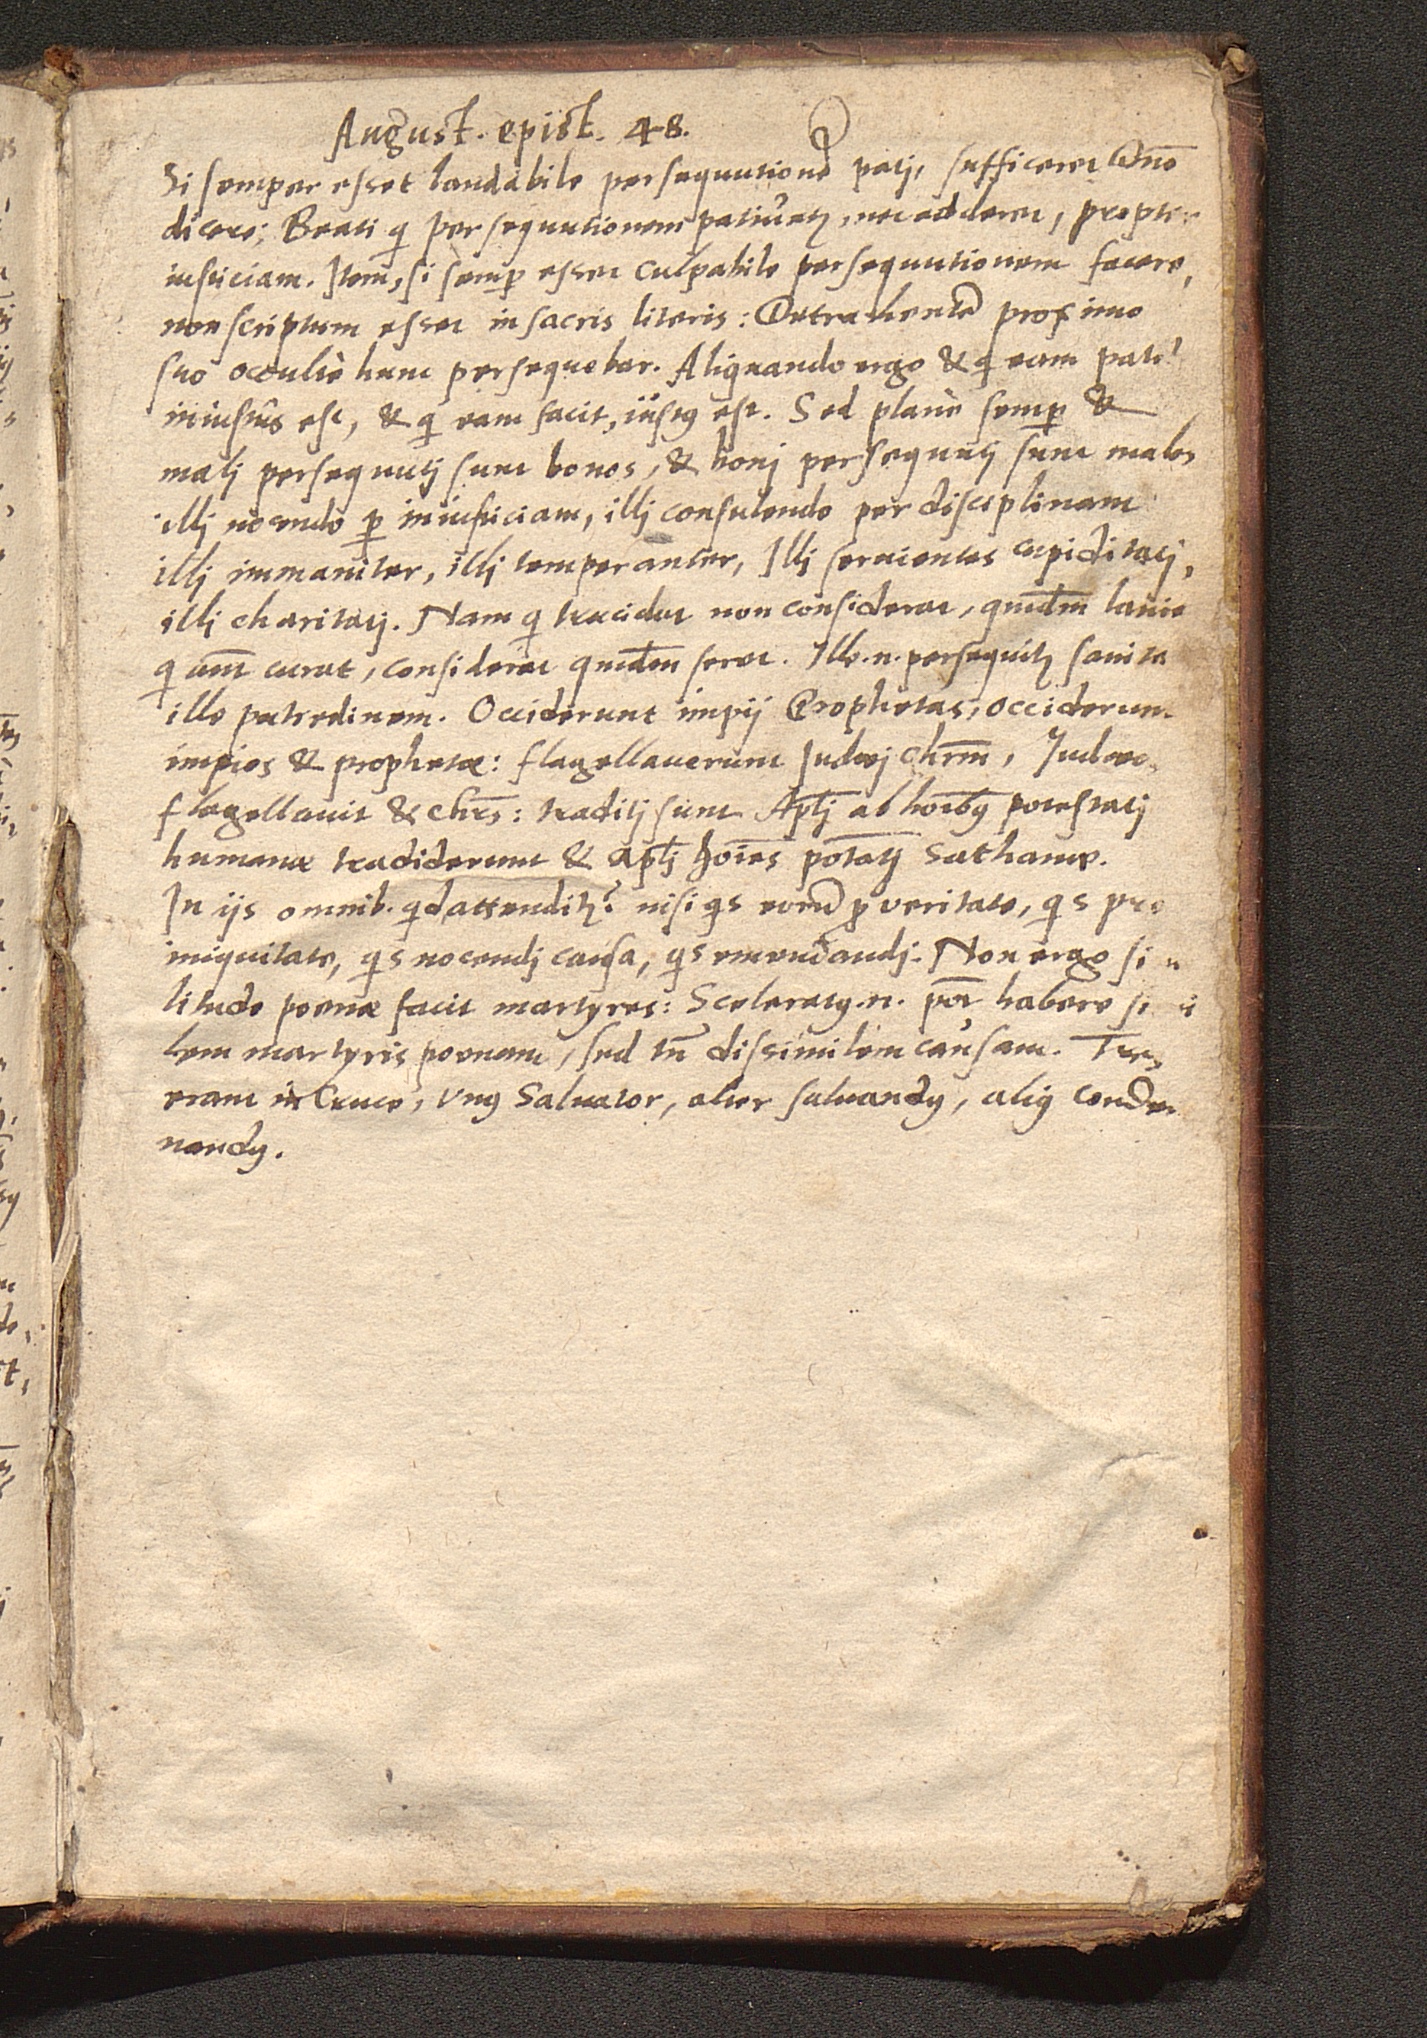 August. epist. 48.
Si semper esset laudabile persequutionẽ patj, sufficeret Dñõ
dicere; Beati q̃ persequutionem patiũtꝛ, nec adderet, propter
iusticiam. Itẽm, si semꝑ esset culpabile persequutionem facere,
non scriptum esset in sacris literis: Detrahentẽ proximo
suo occultè hunc persequebar. Aliquando ergo & q̃ eam patiʳ
iniustus est, & q̃ eam facit, iustꝰ est. Sed planè semꝑ &
malj persequutj sunt bonos, & bonj persequutj sunt malos
illj nocendo ꝑ iniusticiam, illj consulendo per disciplinam
illj immaniter, illj temperanter, Illj seruientes cupiditatj,
illj charitatj. Nam q̃ trucidat non considerat, quẽdm̃ laniet
q̃ aũt curat, considerat quẽdm̃ secet. Ille .n. persequitꝛ sanita
ille putredinem. Occiderunt impij Prophetas, occiderun
impios & prophetæ: flagellauerunt Judæj Chrm̃, Judæo
flagellauit & Chrs̃: traditj sunt Apl̃j ab hoĩbꝰ potestatj
humanæ tradiderunt & Apl̃j hoĩes pot̃atj Sathanæ.
In ijs omnib. qd̃ attenditꝛ? nisi qs̃ eorũ ꝓ veritate, qs̃ pro
iniquitate, qs̃ nocendj causa, qs̃ emendandj. Non ergo si
litudo poenæ facit martyres: Sceleratꝰ .n. põt habere si
lem martyris poenam, sed tñ dissimilem causam. Tres
erant in Cruce, vnꝰ Saluator, alter saluandꝰ, aliꝰ condem
nandꝰ.